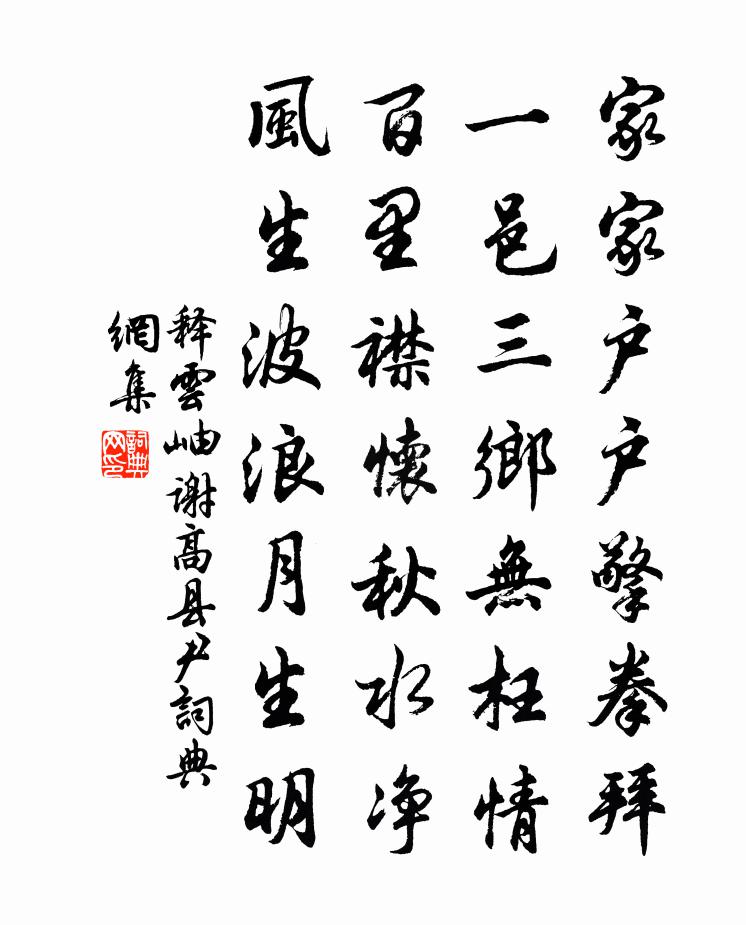 家家户户擎拳拜
一邑三鄉無枉情
百里襟懷秋水净
風生波浪月生明
释雲岫谢高县尹詞典
網集
詞典
网印